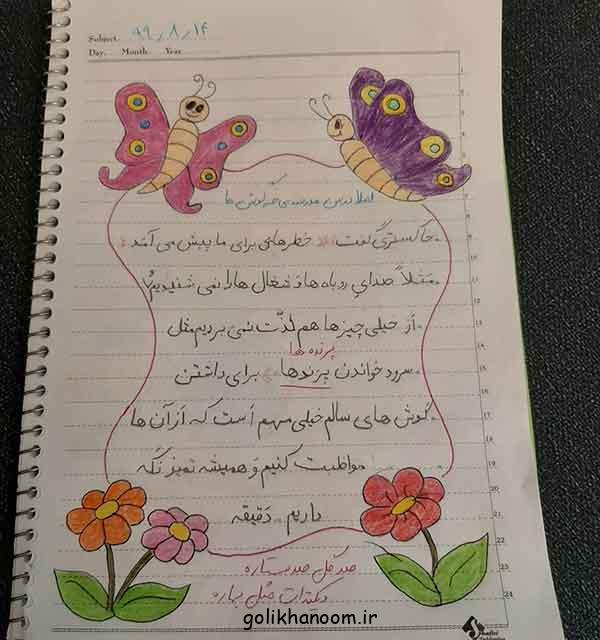 Subject: ۹۹٫۸٫۱۴
Day. Month. Year
املا درس مدرسه‌ی خرگوش ها
خاکستری گفت: « خطرهایی برای ما پیش می آمَد »
مَثلاً صدایِ روباه ها وَ شغال ها را نمی شنیدیم
از خیلی چیزها هم لذّت نمی بردیم مثل
پرنده ها
سرود خواندن پرندها برای داشتن
گوش های سالم خیلی مهم است که از آن ها
مواظبت کنیم وَ همیشه تمیز نگه
داریم. دَقیقه
صد گل صد ستاره
دیکته‌ات مثل بهاره
1
3
4
5
6
7
9
10
11
12
13
14
15
16
17
18
19
20
21
22
23
24
golikhanoom.ir